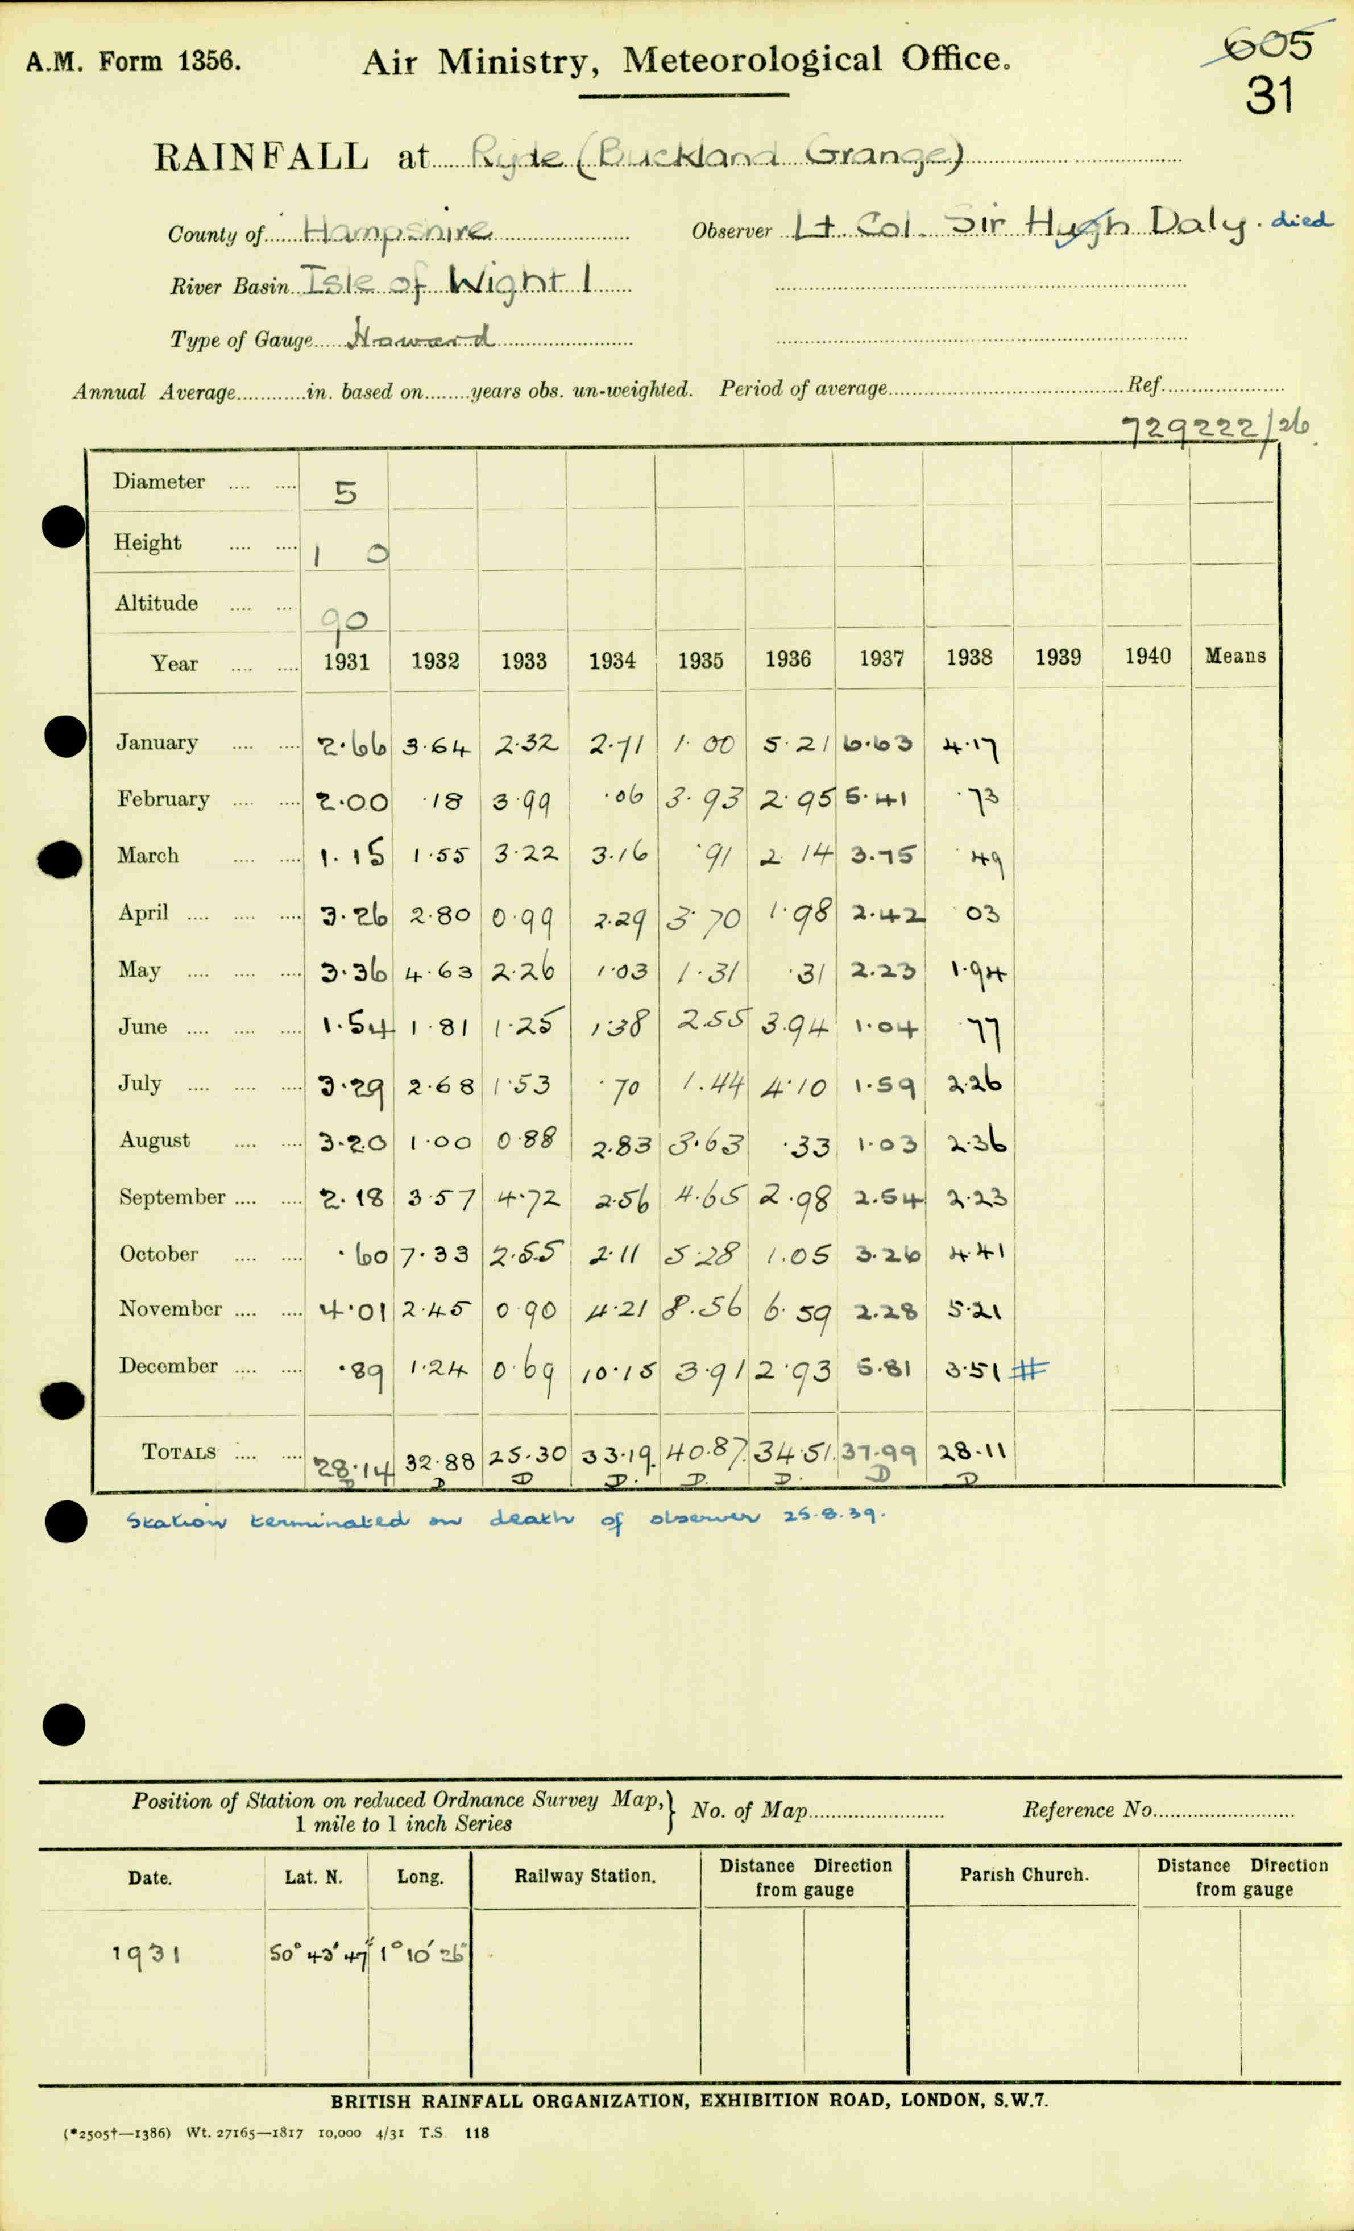 A.M. Form 1356.
Air Ministry, Meteorological Office.
605
31
RAINFALL at Ryde (Buckland Grange)
County of Hampshire Observer Lt Col. Sir Hugh Daly. died
River Basin Isle of Wight 1
Type of Gauge Howard
Annual Average in. based on years obs. un-weighted. Period of average Ref.
729222/26
Diameter 5
Height 1 0
Altitude 90
Year 1931 1932 1933 1934 1935 1936 1937 1938 1939 1940 Means
January 2.66 3.64 2.32 2.71 1.00 5.21 6.63 4.17
February 2.00 .18 3.99 .06 3.93 2.95 5.41 .73
March 1.15 1.55 3.22 3.16 .91 2 14 3.75 .49
April 3.26 2.80 0.99 2.29 3.70 1.98 2.42 03
May 3.36 4.63 2.26 1.03 1.31 .31 2.23 1.94
June 1.54 1.81 1.25 1.38 2.55 3.94 1.04 .77
July 3.29 2.68 1.53 .70 1.44 4.10 1.59 2.26
August 3.20 1.00 0.88 2.83 3.63 .33 1.03 2.36
September 2.18 3.57 4.72 2.56 4.65 2.98 2.54 2.23
October .60 7.33 2.55 2.11 5.28 1.05 3.26 4.41
November 4.01 2.45 0.90 4.21 8.56 6.59 2.28 5.21
December .89 1.24 0.69 10.15 3.91 2.93 5.81 3.51 #
TOTALS 28.14 32.88 25.30 33.19. 40.87. 34.51. 37.99 28.11
D D D D. D. D. D D
Station terminated on death of observer 25.8.39.
Position of Station on reduced Ordnance Survey Map, } No. of Map Reference No.
1 mile to 1 inch Series
Date. Lat. N. Long. Railway Station. Distance Direction from gauge Parish Church. Distance Direction from gauge
1931 50° 43' 47" 1° 10' 26"
BRITISH RAINFALL ORGANIZATION, EXHIBITION ROAD, LONDON, S.W.7.
(*2505†—1386) Wt. 27165—1817 10,000 4/31 T.S 118